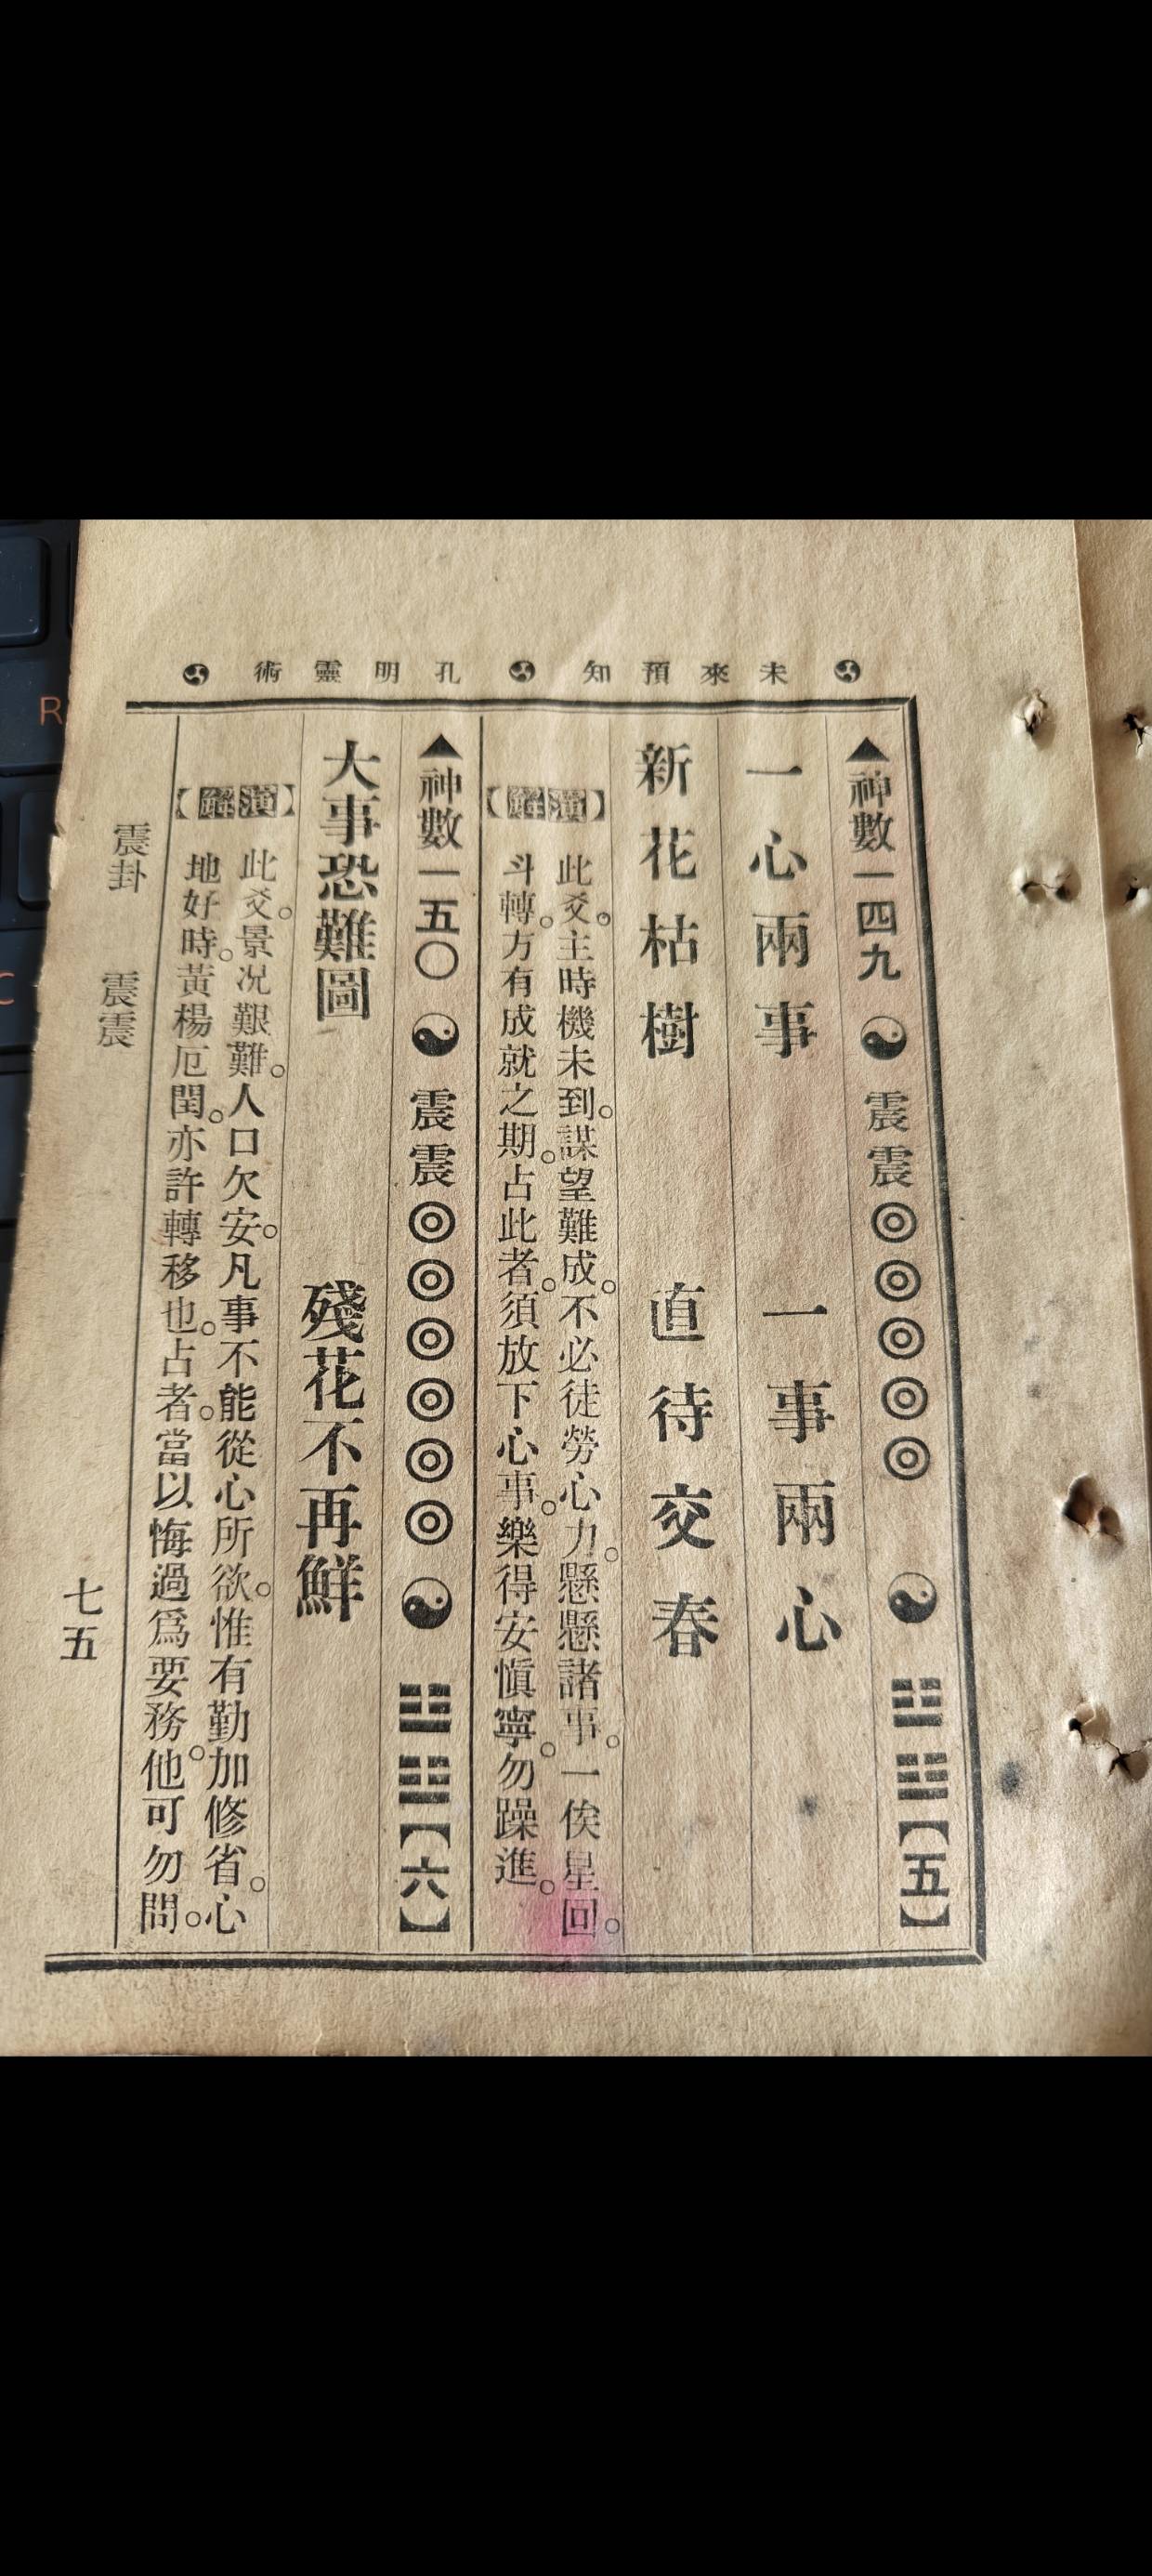 未來預知 孔明靈術
▲神數一四九 ☯ 震震◎◎◎◎◎ ☯ ☳☳【五】
一心兩事 一事兩心
新花枯樹 直待交春
【演解】
此爻。主時機未到。謀望難成。不必徒勞心力。懸懸諸事。一俟星回。
斗轉。方有成就之期。占此者。須放下心事。樂得安愼寧。勿躁進。
▲神數一五〇 ☯ 震震◎◎◎◎◎◎ ☯ ☳☳【六】
大事恐難圖 殘花不再鮮
【演解】
此爻。景况艱難。人口欠安。凡事不能從心所欲。惟有勤加修省。心
地好時。黃楊厄閏。亦許轉移也。占者。當以悔過爲要務。他可勿問。
震卦 震震 七五
R
C